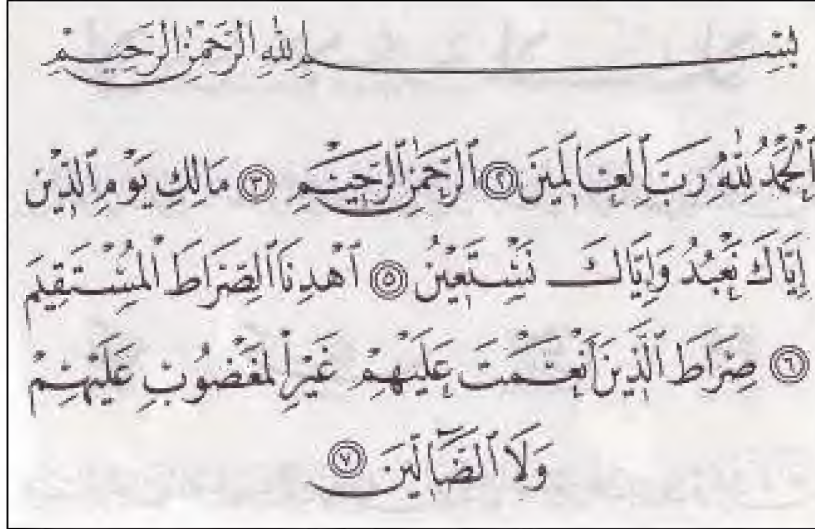 بِسْمِ اللهِ الرَّحْمٰنِ الرَّحِيْمِ
اَلْحَمْدُ لِلّٰهِ رَبِّ الْعَالَمِيْنَ ٢ اَلرَّحْمٰنِ الرَّحِيْمِ ٣ مَالِكِ يَوْمِ الدِّيْنِ
اِيَّاكَ نَعْبُدُ وَاِيَّاكَ نَسْتَعِيْنُ ٥ اِهْدِنَا الصِّرَاطَ الْمُسْتَقِيْمَ
٦ صِرَاطَ الَّذِيْنَ اَنْعَمْتَ عَلَيْهِمْ غَيْرِ الْمَغْضُوْبِ عَلَيْهِمْ
وَلَا الضَّآلِّيْنَ ٧